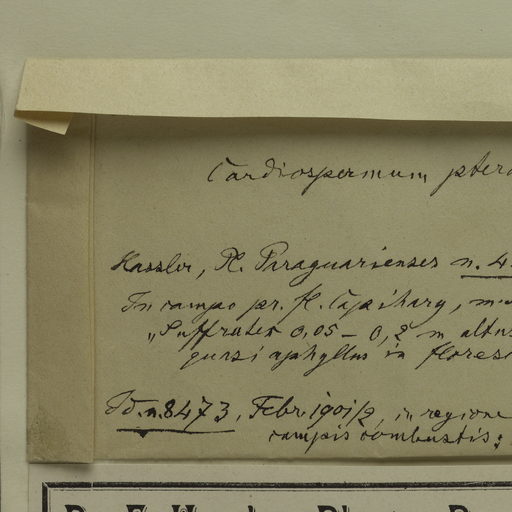 Cardiospermum ptero
Hassler, Pl. Paraguarienses n. 4
In campo pr. fl. Capihary, m
„Suffrutex 0,05 – 0,2 m altus
quasi aphyllus in flores
Id. n. 8473, Febr. 1901/2, in regione
campis combustis: